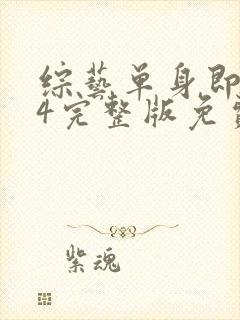 综藝单身即
4完整版免費
紫魂